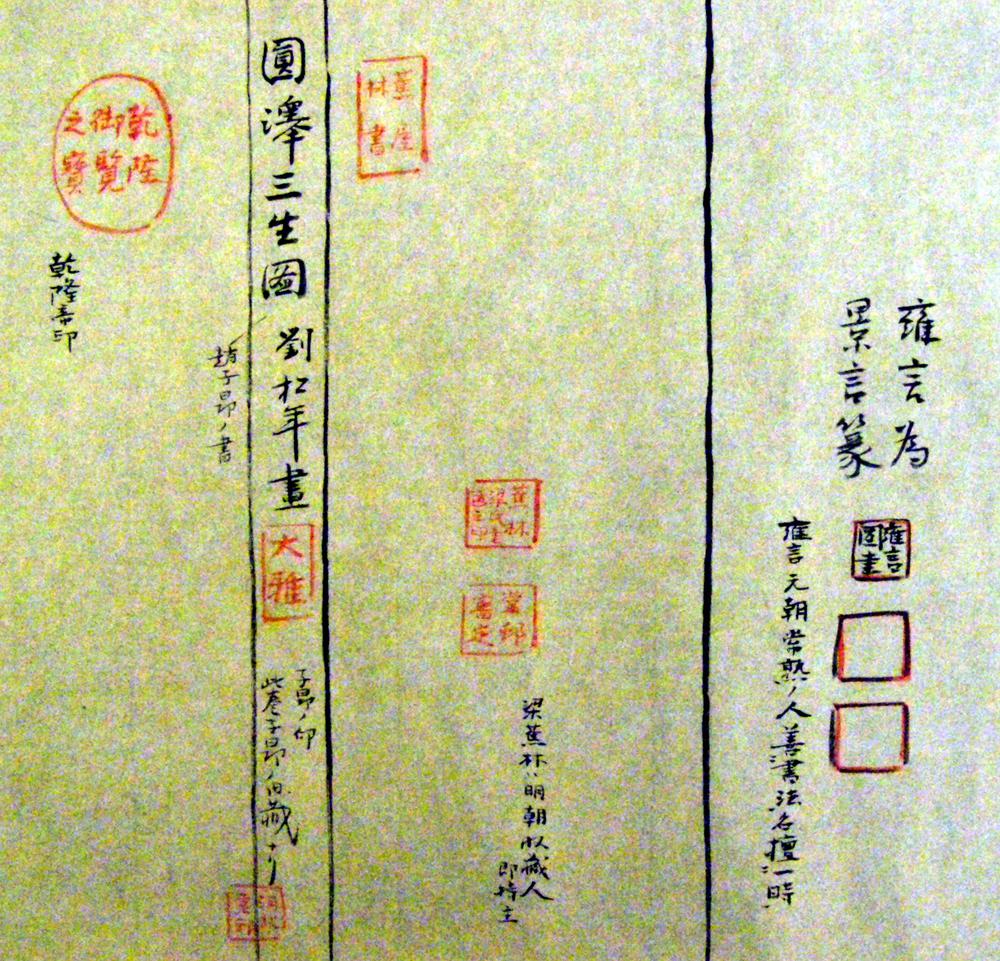 雍言為
景言篆
雍言圖書
雍言元朝常熟ノ人善書法名擅一時
蕉屋
林書
蕉林
棠邨
審定
梁蕉林ハ明朝收藏人
即持主
圓澤三生圖 劉松年畫
大雅
子昂ノ印
此卷子昂ノ旧藏ナリ
趙子昂ノ書
乾隆
御覽
之寶
乾隆帝印